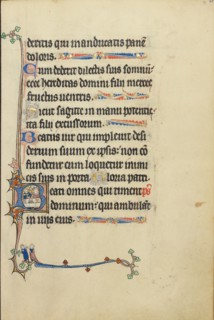 deritis qui manducatis panē
doloris.
Cum dederit dilectis suis somnū:
ecce hereditas domini filii merces
fructus uentris.
Sicut sagitte in manu potentis:
ita filii excussorum.
Beatus uir qui impleuit desi
derium suum ex ipsis: non cō
fundetur cum loquetur inimi
cis suis in porta. Gloria patri.
Beati omnes qui timent
dominum: qui ambulāt
in uiis eius.